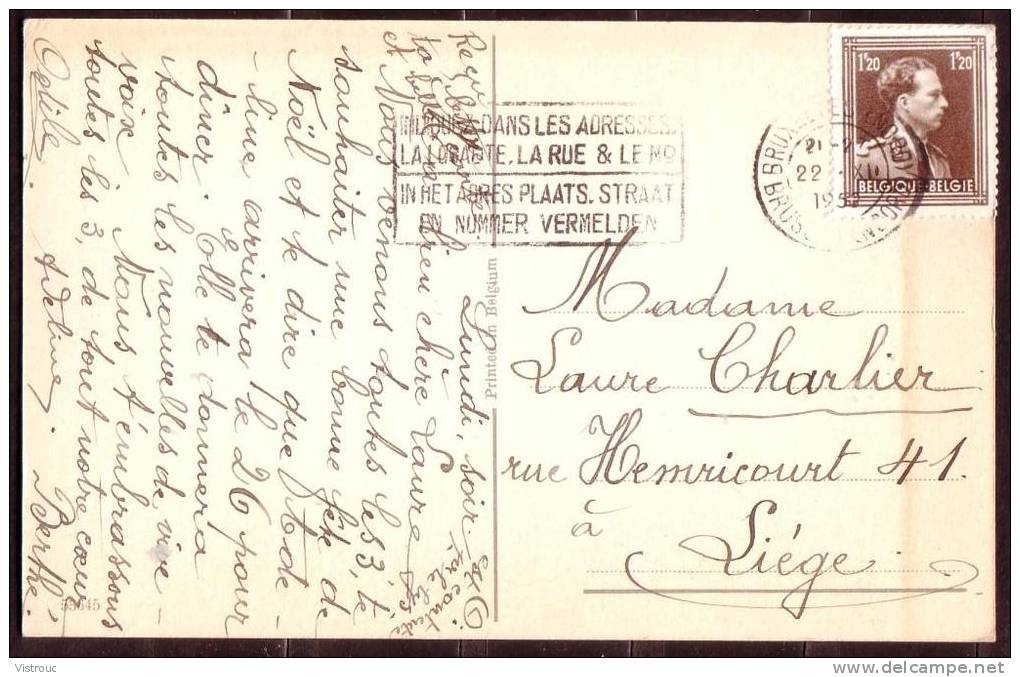 Lundi, soir.
Bien chère Laure
Nous venons toutes les 3, te
souhaiter une bonne fête de
Noël et te dire que Made-
-line arrivera le 26 pour
dîner. Elle te donnera
toutes les nouvelles de vive-
voix. Nous t'embrassons
toutes les 3, de tout notre cœur
Adeline. Berthe.
Odile.
53645
Printed in Belgium
DANS LES ADRESSES,
LA LOCALITE, LA RUE & LE No
IN HET ADRES PLAATS, STRAAT
EN NUMMER VERMELDEN
22 XII
195
1F20 1F20
BELGIQUE-BELGIE
Madame
Laure Charlier
rue Hemricourt 41.
à
Liége.
© Vistrouc
www.delcampe.net